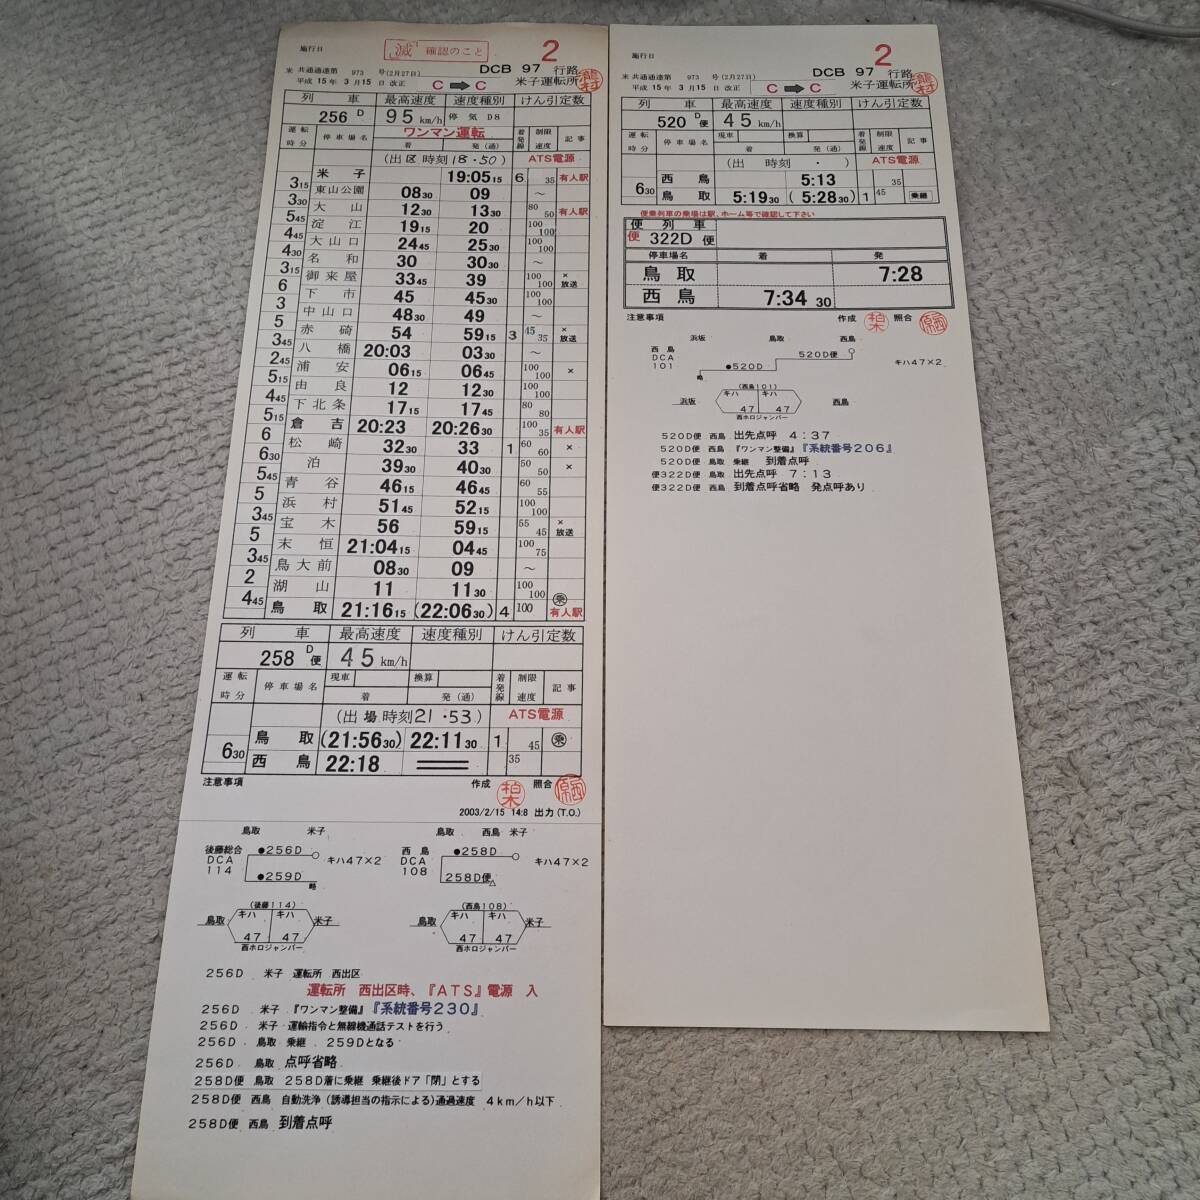 施行日
滅 確認のこと
2
米 共通通達第 973 号(2月27日) DCB 97 行路
平成 15年 3月15日 改正 C ➡ C 米子運転所
列車 最高速度 速度種別 けん引定数
256D 95km/h 停気 D8
運転時分 停車場名 ワンマン運転 着発線 制限速度 記事
着 発(通)
(出区時刻18・50) ATS電源
米子 19:05 15 6 35 有人駅
3 15 東山公園 08 30 09 ～
3 30 大山 12 30 13 30 80 50 有人駅
5 45 淀江 19 15 20 100 100
4 45 大山口 24 45 25 30 100 100
4 30 名和 30 30 30 ～
3 15 御来屋 33 45 39 100 100 × 放送
6 下市 45 45 30 100 100
3 中山口 48 30 49 ～
5 赤碕 54 59 15 3 45 35 × 放送
3 45 八橋 20:03 03 30 ～
2 45 浦安 06 15 06 45 100 100 ×
5 15 由良 12 12 30 100 100
4 45 下北条 17 15 17 45 80 80
5 15 倉吉 20:23 20:26 30 100 35 有人駅
6 松崎 32 30 33 1 60 60 ×
6 30 泊 39 30 40 50 50 ×
5 45 青谷 46 15 46 45 60 55
5 浜村 51 45 52 15 100 100
3 45 宝木 56 59 15 55 45 × 放送
5 末恒 21:04 15 04 45 100 75
3 45 鳥大前 08 30 09 ～
2 湖山 11 11 30 100 100
4 45 鳥取 21:16 15 (22:06 30) 4 100 乗 有人駅
列車 最高速度 速度種別 けん引定数
258D便 45km/h
運転時分 停車場名 現車 換算 着発線 制限速度 記事
着 発(通)
(出場時刻21・53) ATS電源
鳥取 (21:56 30) 22:11 30 1 45 乗
6 30 西鳥 22:18 35
注意事項 作成 柏木 照合
2003/2/15 14:8 出力(T.O.)
鳥取 米子 鳥取 西鳥 米子
後藤総合 DCA 114 ●256D キハ47×2
●259D 略
西鳥 DCA 108 ●258D キハ47×2
258D便
(後藤114) (西鳥108)
鳥取 キハ 47 キハ 47 米子 鳥取 キハ 47 キハ 47 米子
西ホロジャンパー 西ホロジャンパー
256D 米子 運転所 西出区
運転所 西出区時、『ATS』電源 入
256D 米子 『ワンマン整備』『系統番号230』
256D 米子 運輸指令と無線機通話テストを行う
256D 鳥取 乗継 259Dとなる
256D 鳥取 点呼省略
258D便 鳥取 258D着に乗継 乗継後ドア「閉」とする
258D便 西鳥 自動洗浄(誘導担当の指示による)通過速度 4km/h以下
258D便 西鳥 到着点呼
施行日
2
米 共通通達第 973 号(2月27日) DCB 97 行路
平成 15年 3月15日 改正 C ➡ C 米子運転所
列車 最高速度 速度種別 けん引定数
520D便 45km/h
運転時分 停車場名 現車 換算 着発線 制限速度 記事
着 発(通)
(出 時刻 ・ ) ATS電源
西鳥 5:13 35
6 30 鳥取 5:19 30 (5:28 30) 1 45 乗継
便乗列車の乗場は駅、ホーム等で確認して下さい
便 列車
便 322D 便
停車場名 着 発
鳥取 7:28
西鳥 7:34 30
注意事項 作成 柏木 照合
浜坂 鳥取 西鳥
西鳥 DCA 101 520D便 キハ47×2
●520D
略
(西鳥101)
浜坂 キハ 47 キハ 47 西鳥
西ホロジャンパー
520D便 西鳥 出先点呼 4:37
520D便 西鳥 『ワンマン整備』『系統番号206』
520D便 鳥取 乗継 到着点呼
便322D便 鳥取 出先点呼 7:13
便322D便 西鳥 到着点呼省略 発点呼あり